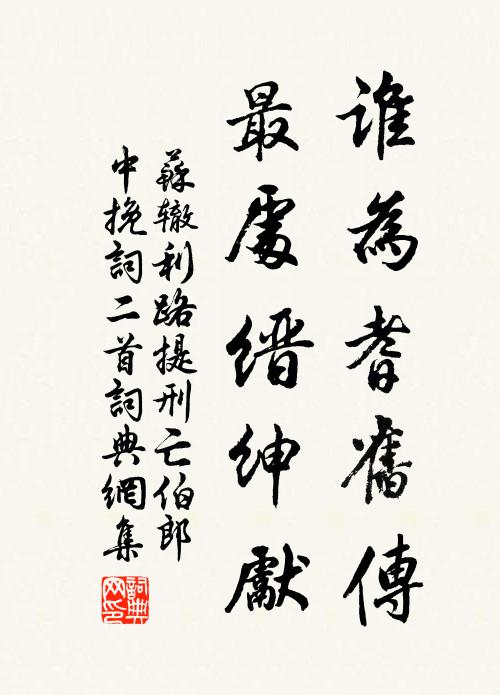 誰為耆舊傳
最處縉紳獻
蘇轍利路提刑亡伯郎
中挽詞二首詞典網集
詞典
网印